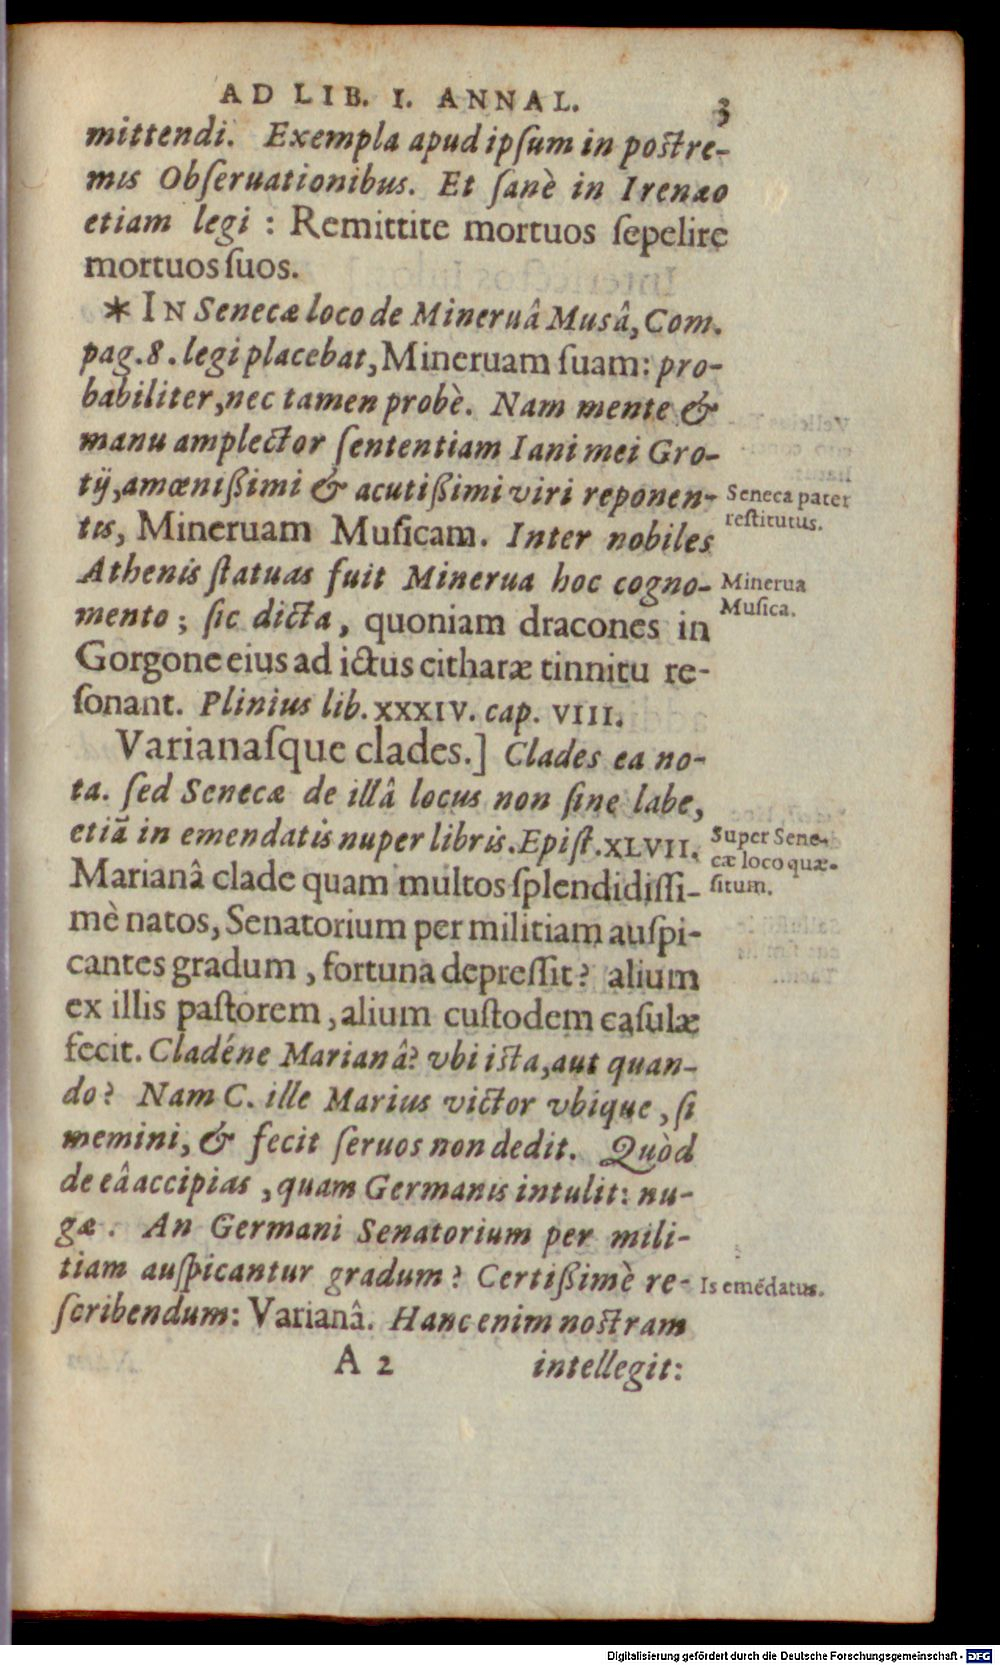 AD LIB. I. ANNAL. 3
mittendi. Exempla apud ipſum in poſtre-
mis Obſeruationibus. Et ſanè in Irenæo
etiam legi : Remittite mortuos ſepelire
mortuos ſuos.
* IN Senecæ loco de Mineruâ Musâ, Com.
pag. 8. legi placebat, Mineruam ſuam: pro-
babiliter, nec tamen probè. Nam mente &
manu amplector ſententiam Iani mei Gro-
tij, amœnißimi & acutißimi viri reponen-
tis, Mineruam Muſicam. Inter nobiles
Seneca pater
reſtitutus.
Athenis ſtatuas fuit Minerua hoc cogno-
mento ; ſic dicta, quoniam dracones in
Minerua
Muſica.
Gorgone eius ad ictus citharæ tinnitu re-
ſonant. Plinius lib. XXXIV. cap. VIII.
Varianaſque clades.] Clades ea no-
ta. ſed Senecæ de illâ locus non ſine labe,
etiā in emendatis nuper libris. Epiſt. XLVII.
Super Sene-
cæ loco quæ-
ſitum.
Marianâ clade quam multos ſplendidiſſi-
mè natos, Senatorium per militiam auſpi-
cantes gradum, fortuna depreſſit? alium
ex illis paſtorem, alium cuſtodem caſulæ
fecit. Cladéne Marianâ? vbi iſta, aut quan-
do? Nam C. ille Marius victor vbique, ſi
memini, & fecit ſeruos non dedit. Quòd
de eâ accipias, quam Germanis intulit: nu-
gæ. An Germani Senatorium per mili-
tiam auſpicantur gradum? Certißimè re-
Is emēdatus.
ſcribendum: Varianâ. Hanc enim noſtram
A 2 intellegit:
Digitalisierung gefördert durch die Deutsche Forschungsgemeinschaft - DFG